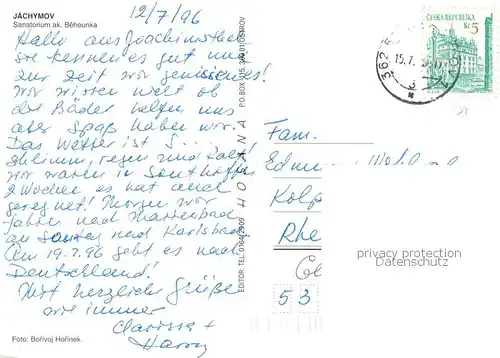 JÁCHYMOV
Sanatorium ak. Běhounka
12/7/96
Hallo aus Joachimsthal
sie kennen es gut und
zur Zeit wir geniessen es!
wir wissen nicht ob
die Bäder helfen uns
aber Spaß haben wir.
Das Wetter ist S...
schlimm, regen und kalt!
Wir waren in Sonthofen
2 Wochen es hat auch
geregnet! Morgen wir
fahren nach Marienbad
am Sonntag nach Karlsbad.
Am 19.7.96 geht es nach
Deutschland!
Mit herzliche Grüße
wie immer
Clarissa +
Harry
Foto: Bořivoj Hořínek
EDITOR: TEL 0164/2909 HOŘANA P.O.BOX 015, 363 01 OSTROV
ČESKÁ REPUBLIKA
Kč 5
362
15.7.
3
Fam.
Rhe
53
privacy protection
Datenschutz